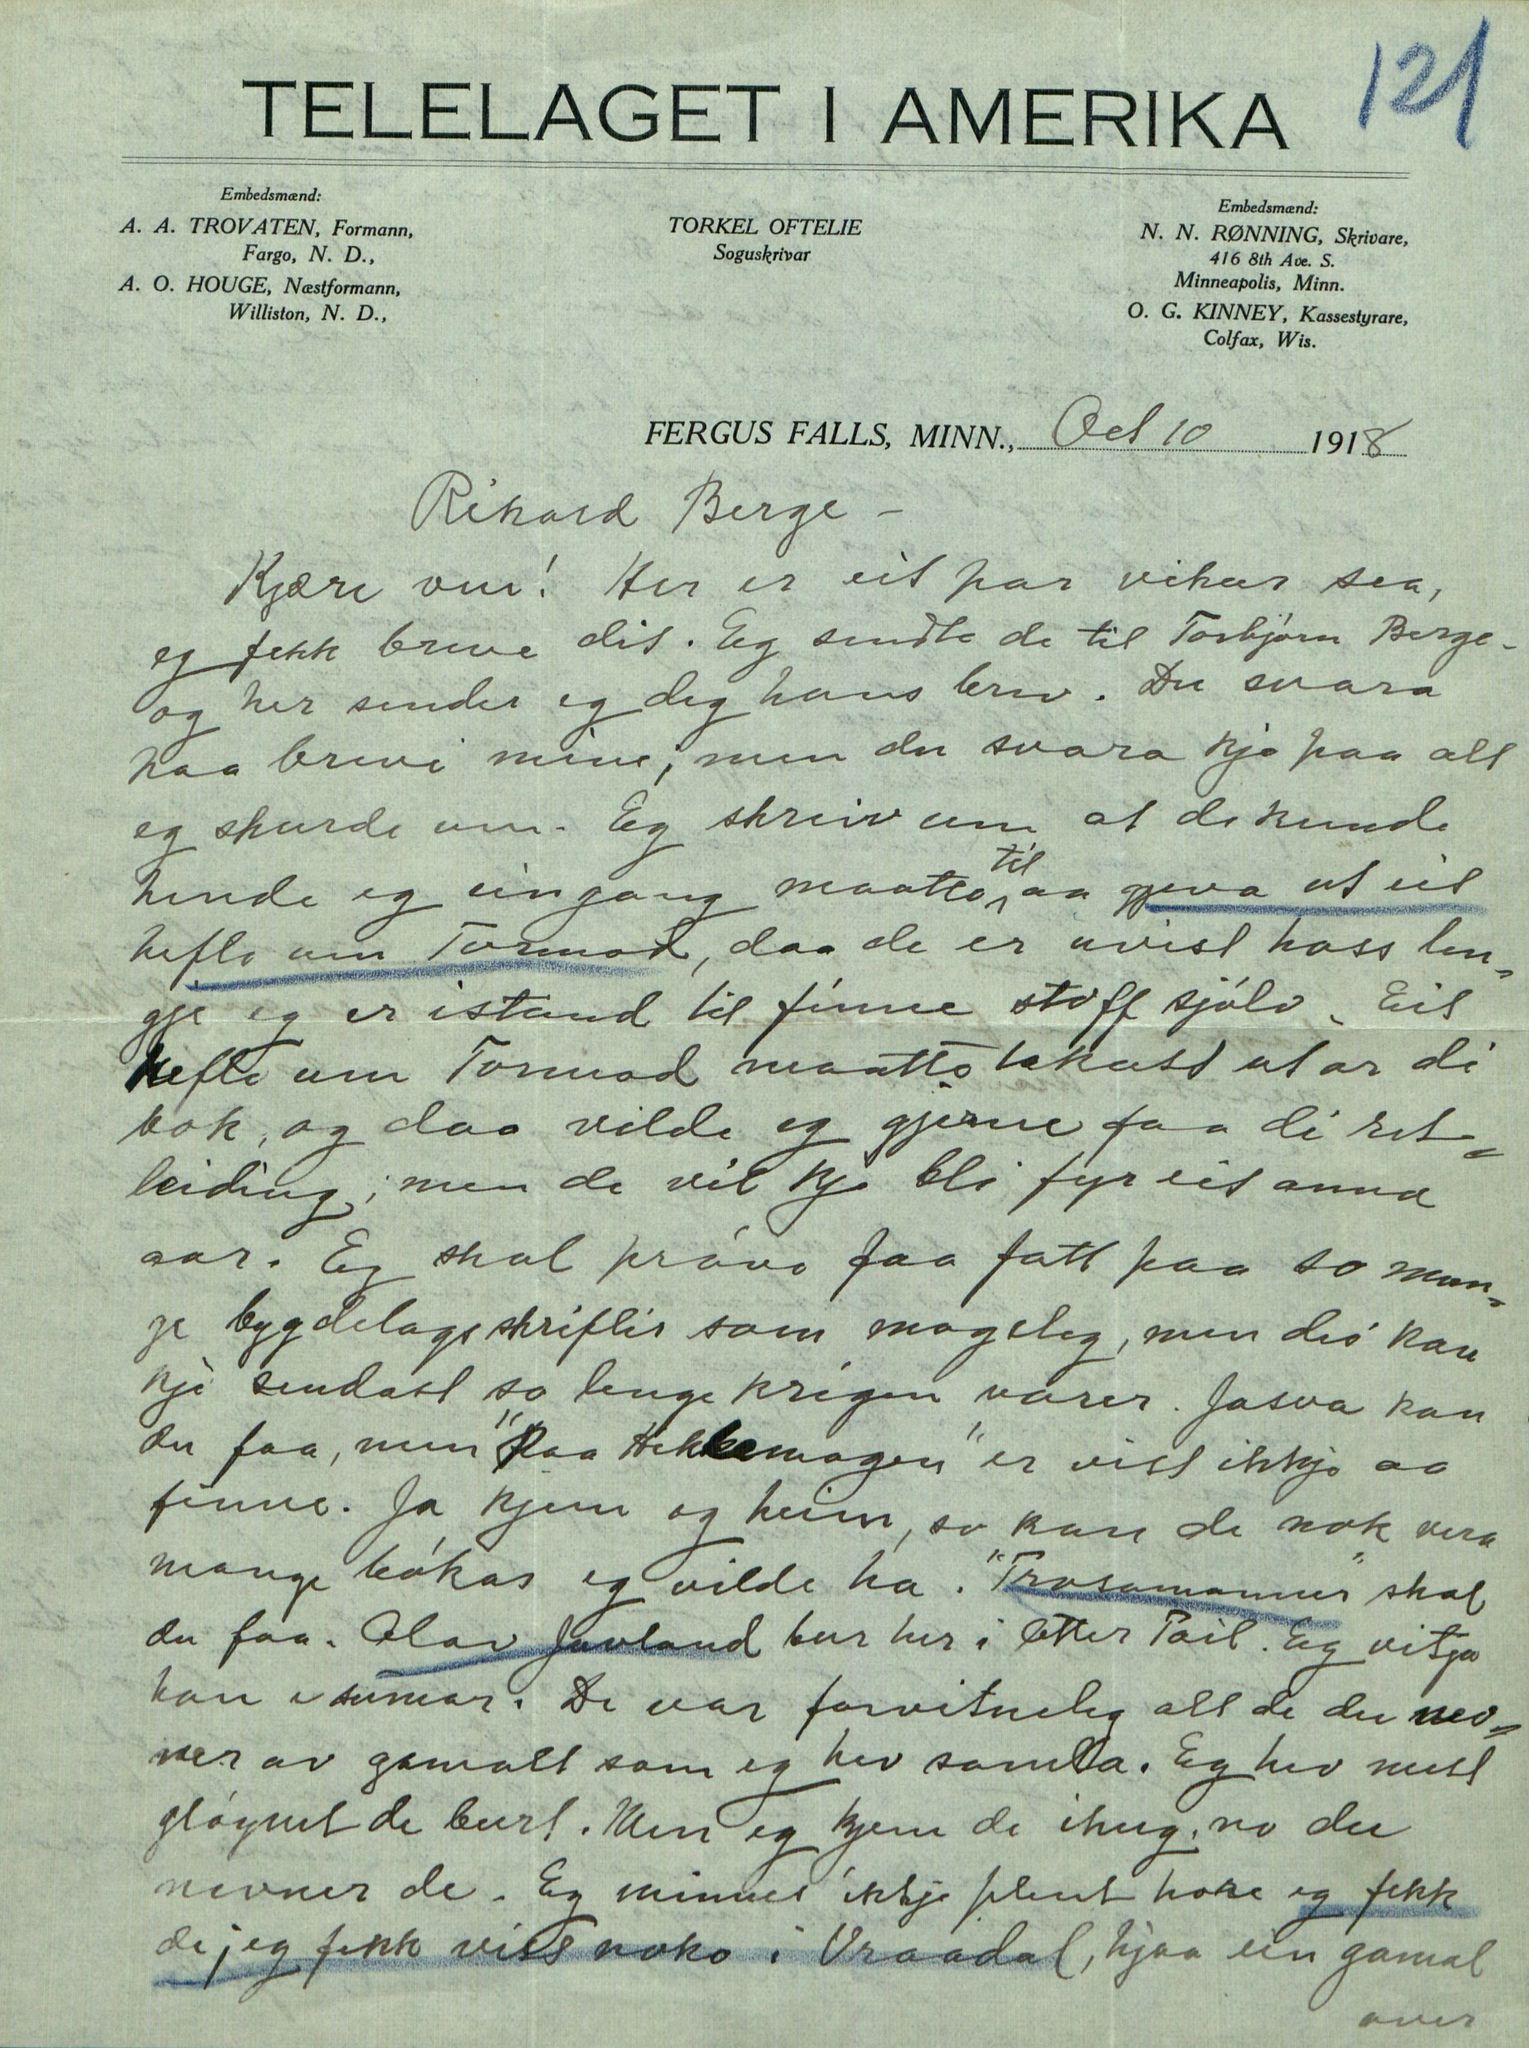 121
TELELAGET I AMERIKA
Embedsmænd:
A. A. TROVATEN, Formann,
Fargo, N. D.,
A. O. HOUGE, Næstformann,
Williston, N. D.,
TORKEL OFTELIE
Soguskrivar
Embedsmænd:
N. N. RØNNING, Skrivare,
416 8th Ave. S.
Minneapolis, Minn.
O. G. KINNEY, Kassestyrare,
Colfax, Wis.
FERGUS FALLS, MINN., Oct 10 1918
Rikard Berge –
Kjære ven! Her er eit par vikur sea,
eg fekk breve dit. Eg sendte de til Torbjørn Berge -
og her sender eg deg hans brev. Du svara
paa brevi mine; men du svara kje paa alt
eg skurde um. Eg skreiv um at de kunde
hende eg eingang maatte til aa gjeva ut eit
hefte um Tormod, daa de er uvist hoss len-
gje eg er istand til finne stoff sjólv. Eit
hefte um Tormod maatte takast ut ar di
bok, og daa vilde eg gjerne faa di ret-
leiding; men de vil kje bli fyr eit anna
aar. Eg skal próve faa fatt paa so man-
ge bygdelagsskrifter som mogeleg, men dei kan
kje sendast so lenge krigen varer. Jasva kan
du faa, men "Paa Hekkemogen" er vist ikkje aa
finne. Ja kjem eg heim, so kan de nok vera
mange bókar eg vilde ha. "Trosamanner" skal
du faa. Olav Juvland bur her i Otter Tail. Eg vitja
han i sumar. De var forvitneleg alt de du nev-
ner av gamalt som eg hev samla. Eg hev mest
glóymt de burt. Men eg kjem de ihug, no du
nevner de. Eg minnes ikkje plent hore eg fekk
de; eg fekk vist noko i Vraadal, hjaa ein gamal
over